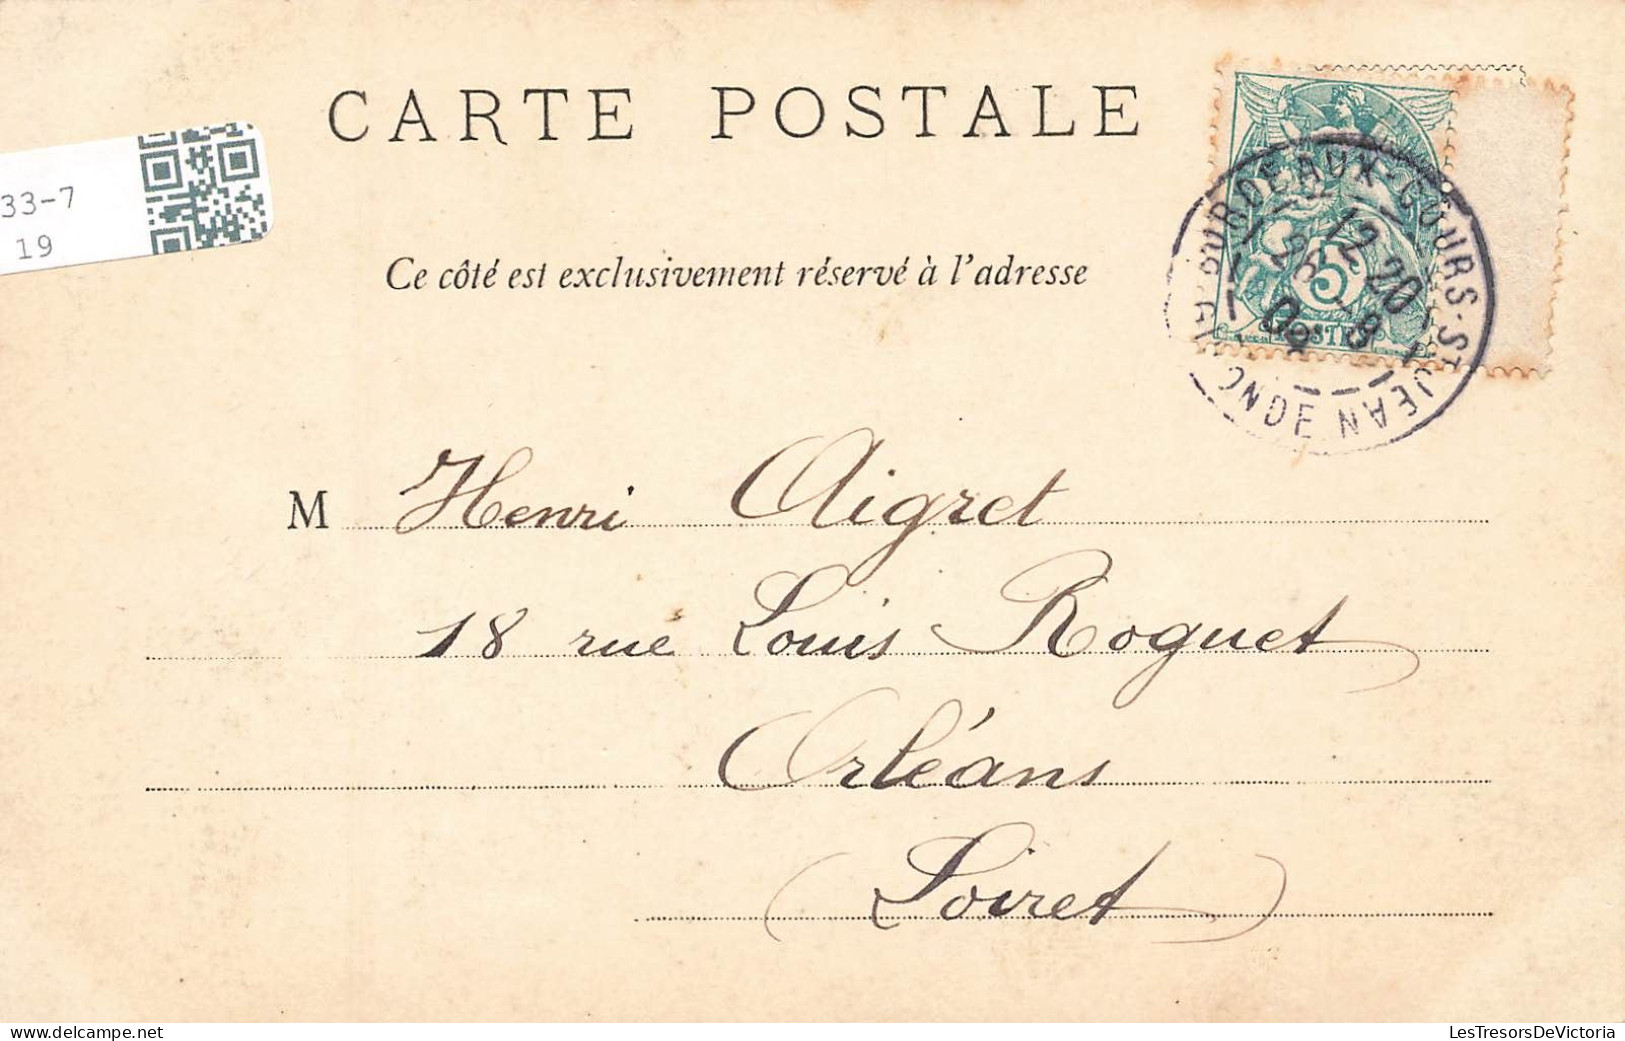 CARTE POSTALE
33-7
19
Ce côté est exclusivement réservé à l'adresse
BORDEAUX-COURS-ST JEAN
GIRONDE
12 20
26 -8
02
5
POSTES
M Henri Aigret
18 rue Louis Roguet
Orléans
(Loiret)
LesTresorsDeVictoria